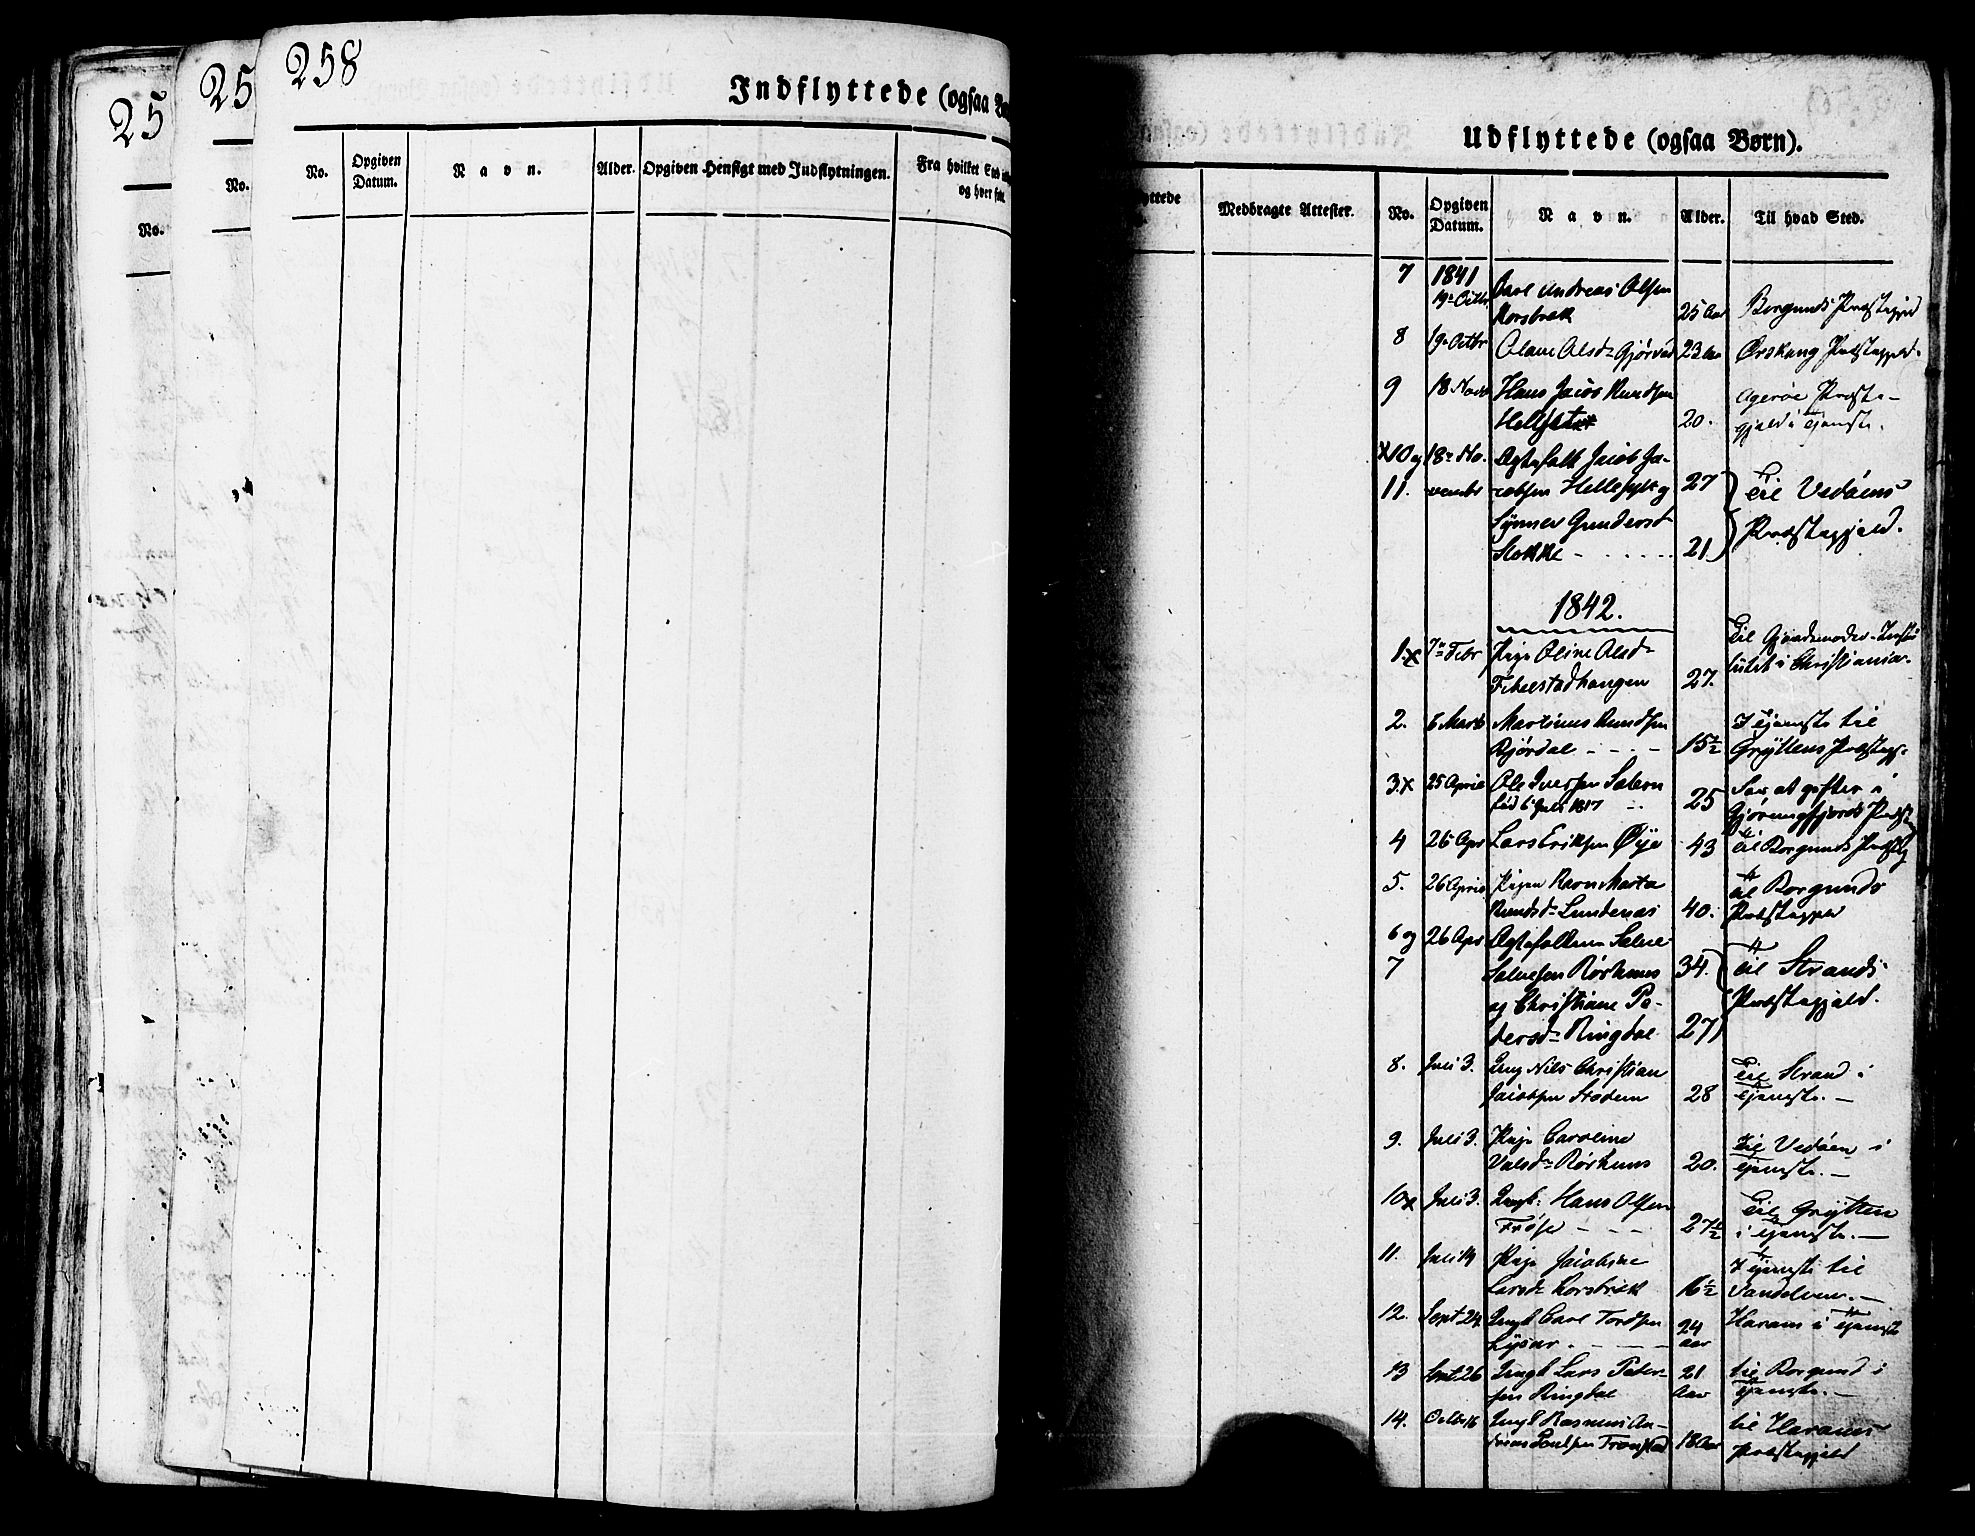 25
25
258
No.
No.
Indflyttede (ogsaa
No.
Opgiven Datum.
Navn.
Alder.
Opgiven Hensigt med Indflytningen.
Fra hvilket Sted
og hver
Udflyttede (ogsaa Børn).
Medbragte Attester.
No.
Opgiven Datum.
Navn.
Alder.
Til hvad Sted.
7 1841
19. Octbr Carl Andreas Olsen
Korsbræk 25 Aar Borgunds Præstegjeld
8 19. Octbr Olave Olsd. 23 Aar Ørskoug Præstegjeld.
9 18 Novbr Hans Jacob Knudsen Agerøe Præste-
20. gjeld i Tjeneste.
x10 og 18. No- Ægtefolk Jacob Ja-
11. vembr cobsen Hellesylt og 27 Til Vedøens
Synnev Gundersd
Stokke - 21 Præstegjeld.
1842.
1.x 7. Febr Pige Oline Olsd. Til Gjordemoder-Insti
Fibelstadhaugen 27. tutet i Christiania.
2. 6 Marts Martinus Knudsen I Tjeneste til
Bjørdal - - - 15½ Grytten Præsteg.
3.x 25 April Ole Iversen Sæbøn 25 Før at gifter i
fød 6 Juli 1817 Hjørungfjords Præst
4 26 Apr Lars Eriksen Øye 43 Til Borgunds Præsteg
5. 26 April Pigen Karn Marta Til Borgunds
Knudsd. Lundenæs 40. Præstegjeld
6 og 26 Apr Ægtefolkene Salve
7 Salvesen Rørhuus 34. Til Strands
og Christiane Pe- Præstegjeld.
dersd. Ringdal 27
8. Juli 3. Ung Nils Christian Til Strand i
Jacobsen Stadem 28 Tjeneste. -
9. Juli 3. Pige Caroline Til Vedøen i
Valsd. Rørhuus 20. Tjeneste. -
10x Juli 3. Ungk: Hans Olsen Til Grytten
- - - 27½ i Tjeneste. -
11. Juli 14 Pige Jacobine I Tjeneste til
Larsd. Korsbræk 16½ Vandelven. -
12. Sept 24. Ungk Carl Tordsen 24 Harams i Tjeneste
- - - Aar
13 Sept. 26 Ungk Lars Peter- 21 til Borgund i
sen Ringdal Aar Tjeneste. -
14. Octbr 16 Ungk Rasmus An- til Harams
dreas Poulsen Tronstad 18 Aar Præstegjeld